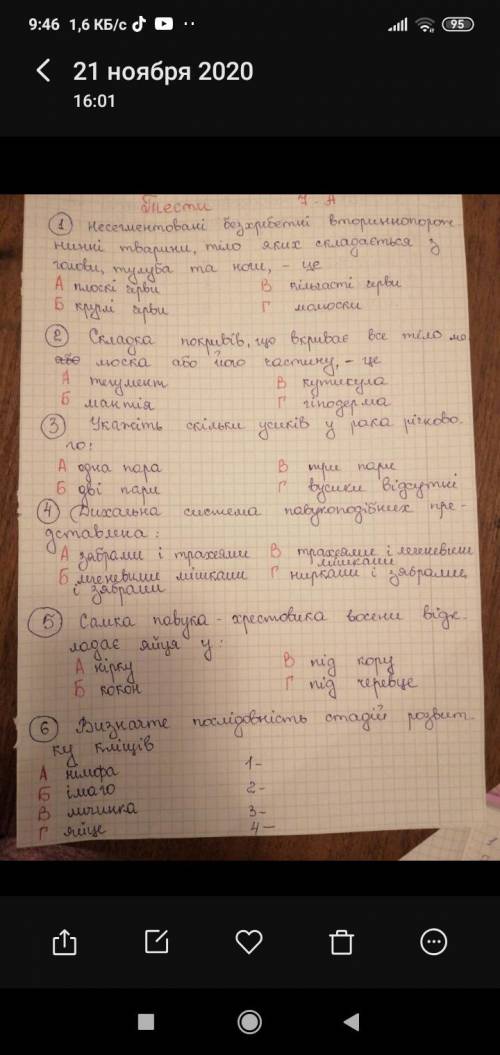 9:46 1,6 КБ/с 95
21 ноября 2020
16:01
Тести 7-А
1 Несегментовані безхребетні вториннопорож-
нинні тварини, тіло яких складається з
голови, тулуба та ноги, - це
А плоскі черви В кільчасті черви
Б круглі черви Г молюски
2 Складка покривів, що вкриває все тіло мо-
люска або його частину, - це
А тегумент В кутикула
Б мантія Г гіподерма
3 Укажіть скільки усиків у рака річково-
го:
А одна пара В три пари
Б дві пари Г вусики відсутні
4 Дихальна система павукоподібних пре-
дставлена:
А зябрами і трахеями В трахеями і легеневими
мішками
Б легеневими мішками Г нирками і зябрами
і зябрами
5 Самка павука-хрестовика восени відк-
ладає яйця у:
А нірку В під кору
Б кокон Г під черевце
6 Визначте послідовність стадій розвит-
ку кліщів
А німфа 1-
Б імаго 2-
В личинка 3-
Г яйце 4-